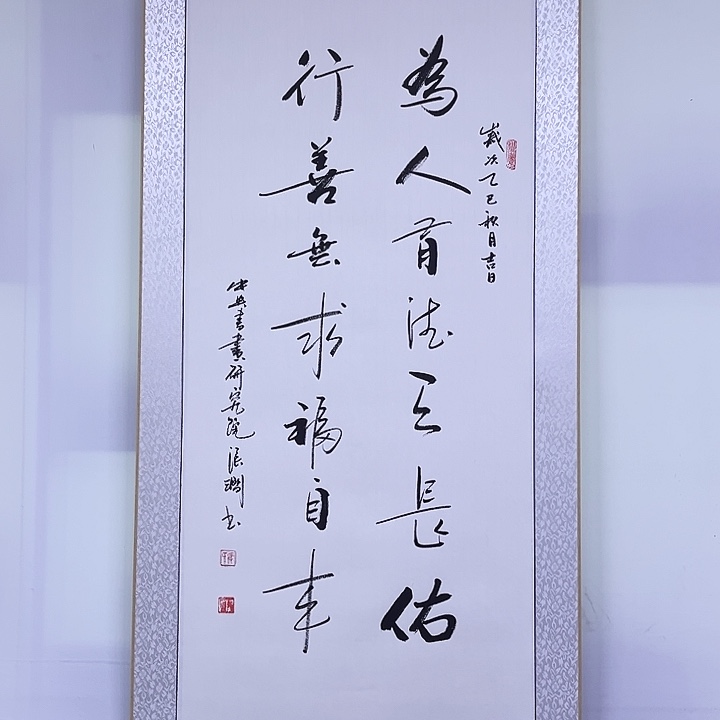 歲次乙巳秋月吉日
為人有德天長佑
行善無求福自来
書畫研究院 书